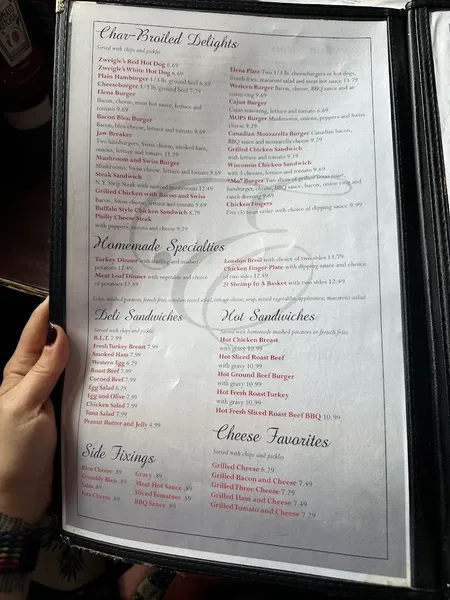 Char-Broiled Delights
Served with chips and pickles
Zweigle's Red Hot Dog 6.69
Zweigle's White Hot Dog 6.69
Plain Hamburger 1/3 lb. ground beef 6.69
Cheeseburger 1/3 lb. ground beef 7.29
Elena Burger
Bacon, cheese, meat hot sauce, lettuce and
tomato 9.69
Bacon Bleu Burger
Bacon, bleu cheese, lettuce and tomato 9.69
Jaw Breaker
Two hamburgers, Swiss cheese, smoked ham,
onions, lettuce and tomato 11.29
Mushroom and Swiss Burger
Mushrooms, Swiss cheese, lettuce and tomato 9.69
Steak Sandwich
N.Y. Strip Steak with sauteed mushrooms 12.49
Grilled Chicken with Bacon and Swiss
Bacon, Swiss cheese, lettuce and tomato 9.69
Buffalo Style Chicken Sandwich 8.79
Philly Cheese Steak
with peppers, tomato and cheese 9.29
Elena Plate Two 1/3 lb. cheeseburgers or hot dogs,
french fries, macaroni salad and meat hot sauce 13.79
Western Burger Bacon, cheese, BBQ sauce and an
onion ring 9.69
Cajun Burger
Cajun seasoning, lettuce and tomato 6.69
MOPS Burger Mushrooms, onions, peppers and Swiss
cheese 9.29
Canadian Mozzarella Burger Canadian bacon,
BBQ sauce and mozzarella cheese 9.29
Grilled Chicken Sandwich
with lettuce and tomato 9.19
Wisconsin Chicken Sandwich
with 3 cheeses, lettuce and tomato 9.69
"Mo" Burger Two slices of grilled Texas toast,
hamburger, cheese, BBQ sauce, bacon, onion ring and
ranch dressing 9.69
Chicken Fingers
Five (5) to an order with choice of dipping sauce 9.99
Homemade Specialties
Turkey Dinner with stuffing and mashed
potatoes 12.49
Meat Loaf Dinner with vegetable and choice
of potatoes 12.49
London Broil with choice of two sides 13.79
Chicken Finger Plate with dipping sauce and choice
of two sides 12.49
21 Shrimp In A Basket with two sides 12.49
Sides: mashed potatoes, french fries, coleslaw, tossed salad, cottage cheese, soup, mixed vegetables, applesauce, macaroni salad
Deli Sandwiches
Served with chips and pickles
B.L.T. 7.99
Fresh Turkey Breast 7.99
Smoked Ham 7.99
Western Egg 6.29
Roast Beef 7.99
Corned Beef 7.99
Egg Salad 6.29
Egg and Olive 7.99
Chicken Salad 7.99
Tuna Salad 7.99
Peanut Butter and Jelly 4.99
Hot Sandwiches
Served with homemade mashed potatoes or french fries
Hot Chicken Breast
with gravy 10.99
Hot Sliced Roast Beef
with gravy 10.99
Hot Ground Beef Burger
with gravy 10.99
Hot Fresh Roast Turkey
with gravy 10.99
Hot Fresh Sliced Roast Beef BBQ 10.99
Side Fixings
Bleu Cheese .89
Crumbly Bleu .89
Salsa .89
Feta Cheese .89
Gravy .89
Meat Hot Sauce .89
Sliced Tomatoes .89
BBQ Sauce .89
Cheese Favorites
Served with chips and pickles
Grilled Cheese 6.29
Grilled Bacon and Cheese 7.49
Grilled Three Cheese 7.29
Grilled Ham and Cheese 7.49
Grilled Tomato and Cheese 7.29